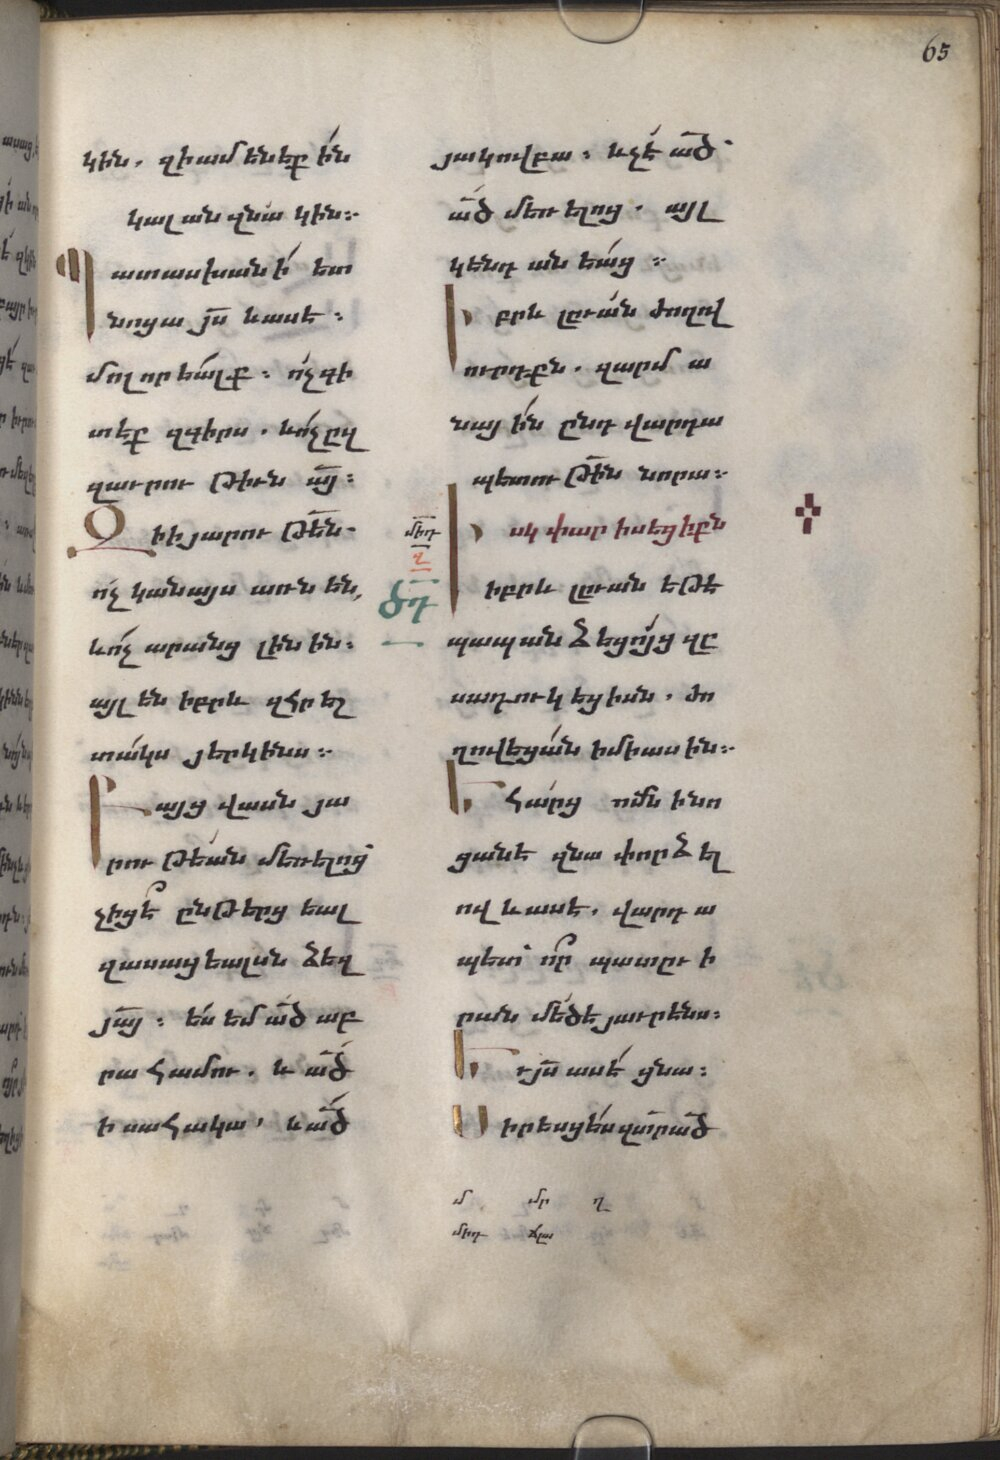 65
կին. զի ամենեքին
կալան զնա կին։
Պատասխանի ետ
նոցա յս և ասէ։
մոլորեալք։ ոչ գի
տէք զգիրս. և ոչ ըզ
զաւրութիւն այ։
Զի ի յարութեն.
ոչ կանայս առնեն,
և ոչ արանց լինին։
այլ են իբրև զհրեշ
տակս յերկինս։
Բայց վասն յա
րութեան մեռելոց՝
չիցէ՞ ընթերցեալ
զասացեալսն ձեզ
յայ։ ես եմ ած աբ
րահամու. և ած
իսահակա, և ած
յակովբա։ և չէ ած՝
ած մեռելոց. այլ
կենդանեաց։
Իբրև լըւան ժողով
ուրդքն. զարմա
նային ընդ վարդա
պետութեն նորա։
Իսկ փարիսեցիքն
իբրև լըւան եթէ
պապանձեցոյց զը
սադուկեցիսն. ժո
ղովեցան ի միասին։
Եհարց ոմն ի նո
ցանէ զնա փորձել
ով և ասէ. վարդա
պետ՝ ո՞ր պատըւի
րան մեծ է յաւրէնս։
Եւ յս ասէ ցնա։
Սիրեսցես զտր ած
միդ
զ
ծդ
մ մր ղ
միդ ճլա